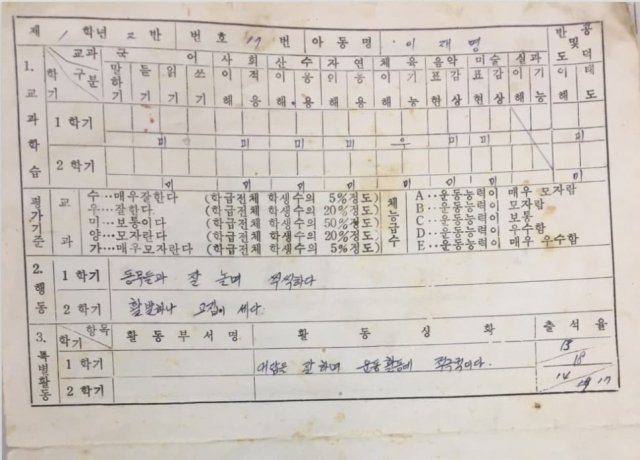 제 1 학년 2 반 번호 19 번 아동명 이재명
교과 국어 사회 산수 자연 체육 음악 미술 실과 반응 및 태도 덕
학기 구분 말하기 듣기 읽기 쓰기 이해 적응 이해 응용 이해 응용 이해 기능 표현 감상 표현 감상 이해 기능
1. 교과학습
1학기
미 미 미 우 미 미 미
2학기
미 미 미 미 미 미
평가기준 교과
수…매우잘한다 (학급전체 학생수의 5%정도)
우…잘한다 (학급전체 학생수의 20%정도)
미…보통이다 (학급전체 학생수의 50%정도)
양…모자란다 (학급전체 학생수의 20%정도)
가…매우모자란다 (학급전체 학생수의 5%정도)
체능급수
A…운동능력이 매우 모자람
B…운동능력이 모자람
C…운동능력이 보통
D…운동능력이 우수함
E…운동능력이 매우 우수함
2. 행동
1학기 동무들과 잘 놀며 씩씩하다
2학기 활발하나 고집이 세다.
3. 특별활동
항목 학기 활동부서명 활동상황 출석율
1학기 대답은 잘 하며 운동 활동에 적극적이다.
2학기